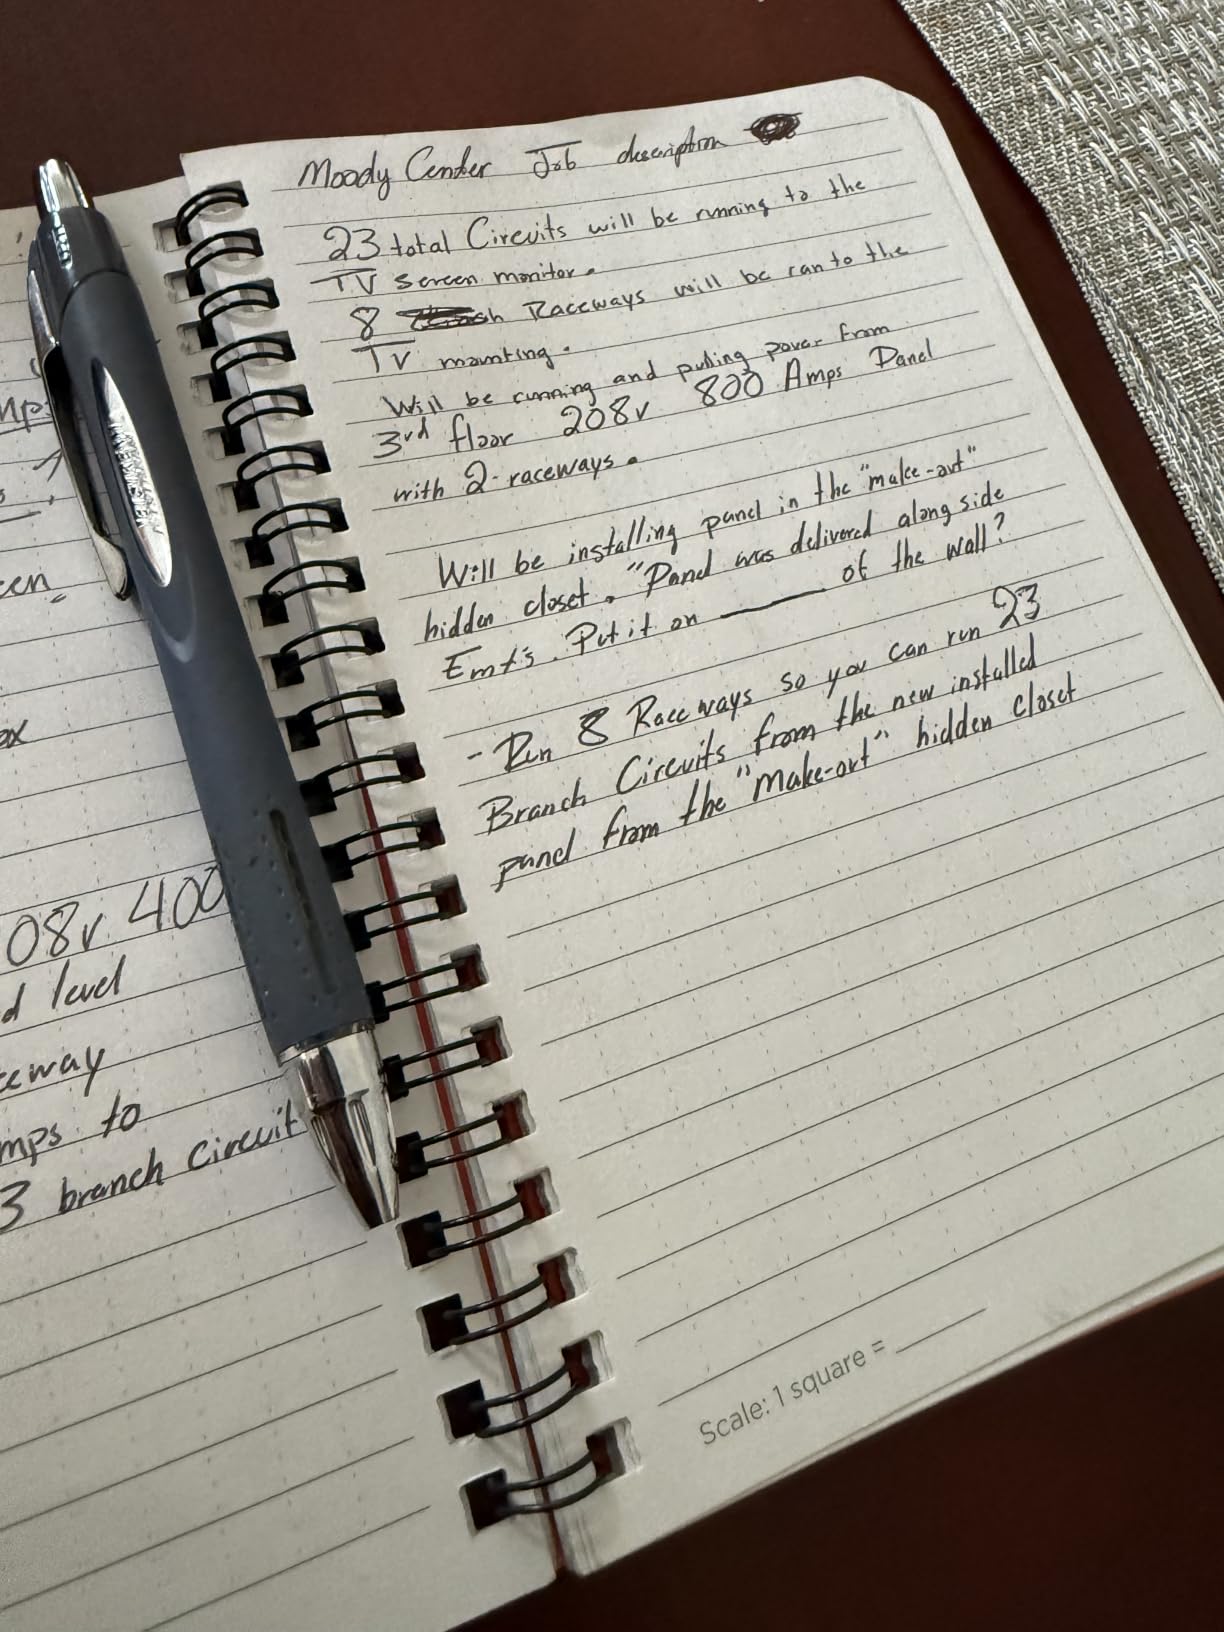 Moody Center Job description
23 total Circuits will be running to the
TV screen monitor.
8 Raceways will be ran to the
TV mounting.
Will be running and pulling power from
3rd floor 208v 800 Amps Panel
with 2-raceways.
Will be installing panel in the "make-out"
hidden closet. "Panel was delivered along side
Emt's. Put it on ______ of the wall?
- Run 8 Raceways so you can run 23
Branch Circuits from the new installed
panel from the "Make-out" hidden closet
Scale: 1 square = ______
08v 400
d level
mps to
3 branch circuit